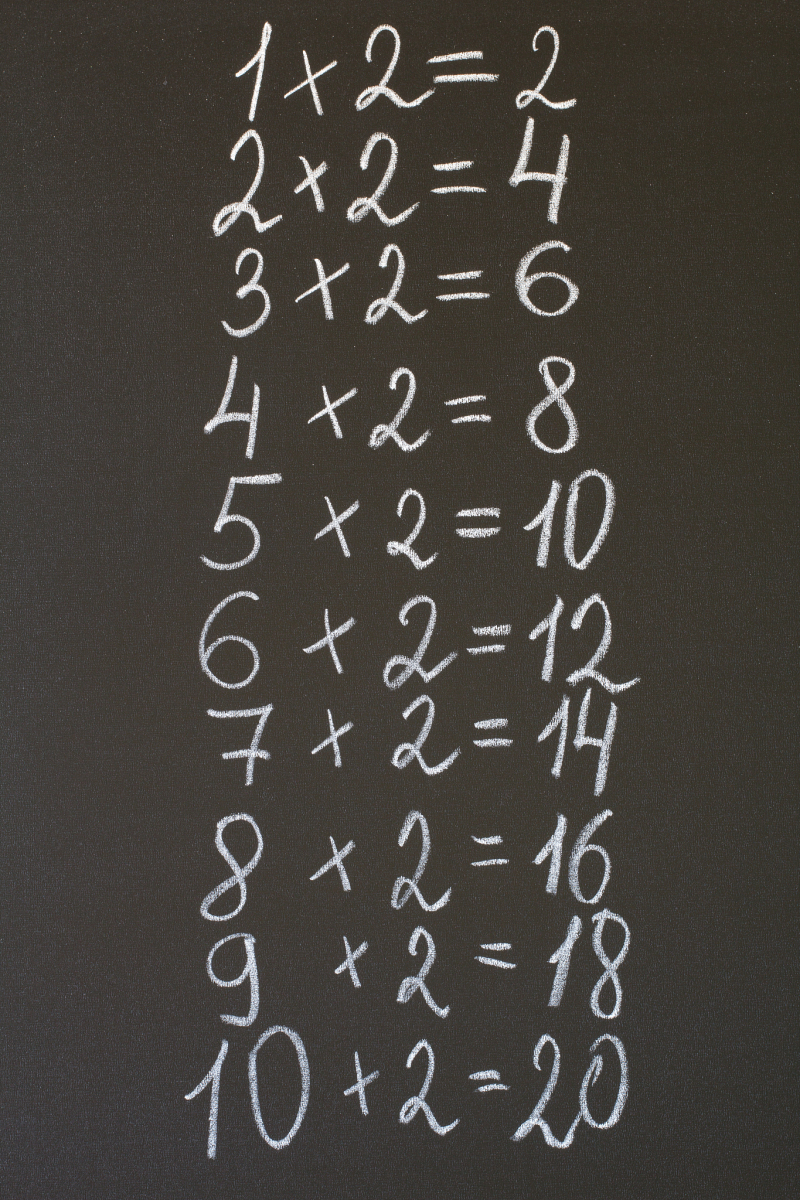 1 × 2 = 2
2 × 2 = 4
3 × 2 = 6
4 × 2 = 8
5 × 2 = 10
6 × 2 = 12
7 × 2 = 14
8 × 2 = 16
9 × 2 = 18
10 × 2 = 20